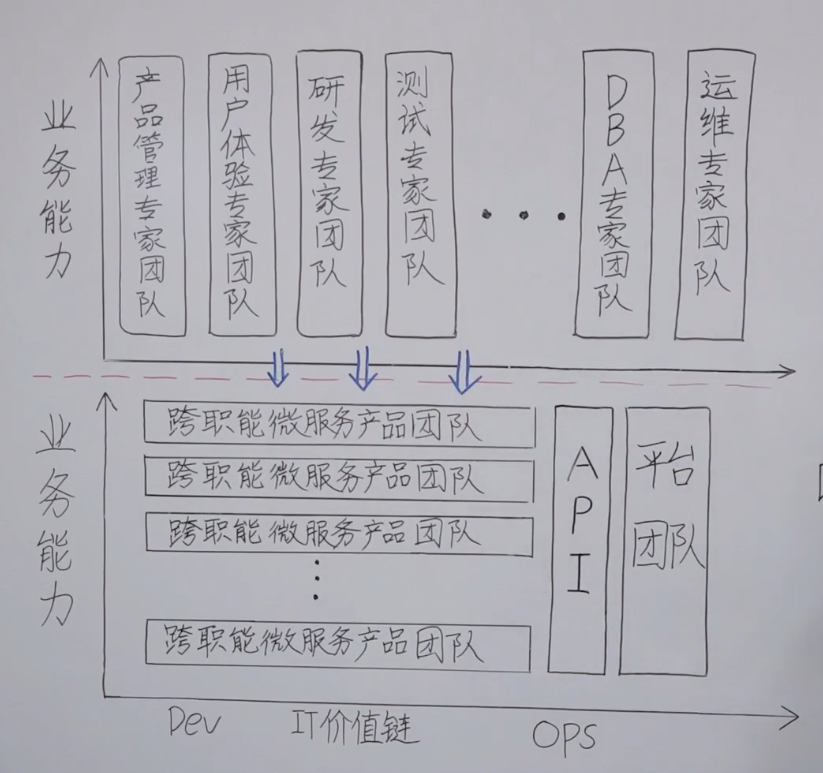 业务能力
产品管理专家团队
用户体验专家团队
研发专家团队
测试专家团队
DBA专家团队
运维专家团队
业务能力
跨职能微服务产品团队
跨职能微服务产品团队
跨职能微服务产品团队
跨职能微服务产品团队
API
平台团队
Dev
IT价值链
OPS